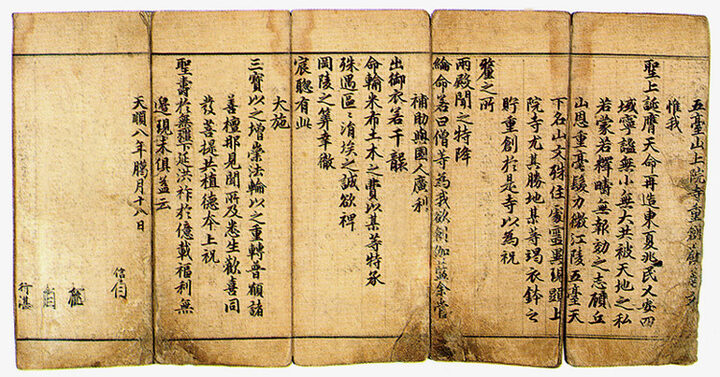 五臺山上院寺重創勸善文
惟我
聖上誕膺天命再造東夏兆民乂安四
域寧謐無小無大共被天地之私
若蒙若釋時無報効之志顧丘
山恩重毫髮力微江陵五臺天
下名山文殊住處靈異現顯上
院寺尤其勝地某等竭衣鉢之
貯重創於是寺以為祝
釐之所
兩殿聞之特降
綸命若曰僧等為我欲創伽藍余當
補助與國人廣利
出御衣若干襲
命輪米布土木之費以某等特承
殊遇區〻涓埃之誠欲裨
岡陵之筭幸徹
宸聦有此
大施
三寶以之增崇法輪以之重轉普願諸
善檀那見聞所及悉生歡喜同
發菩提共植德夲上祝
聖壽於無疆下延洪祚於億載福利無
邊現未俱益云
天順八年臘月十八日
信眉
行湛